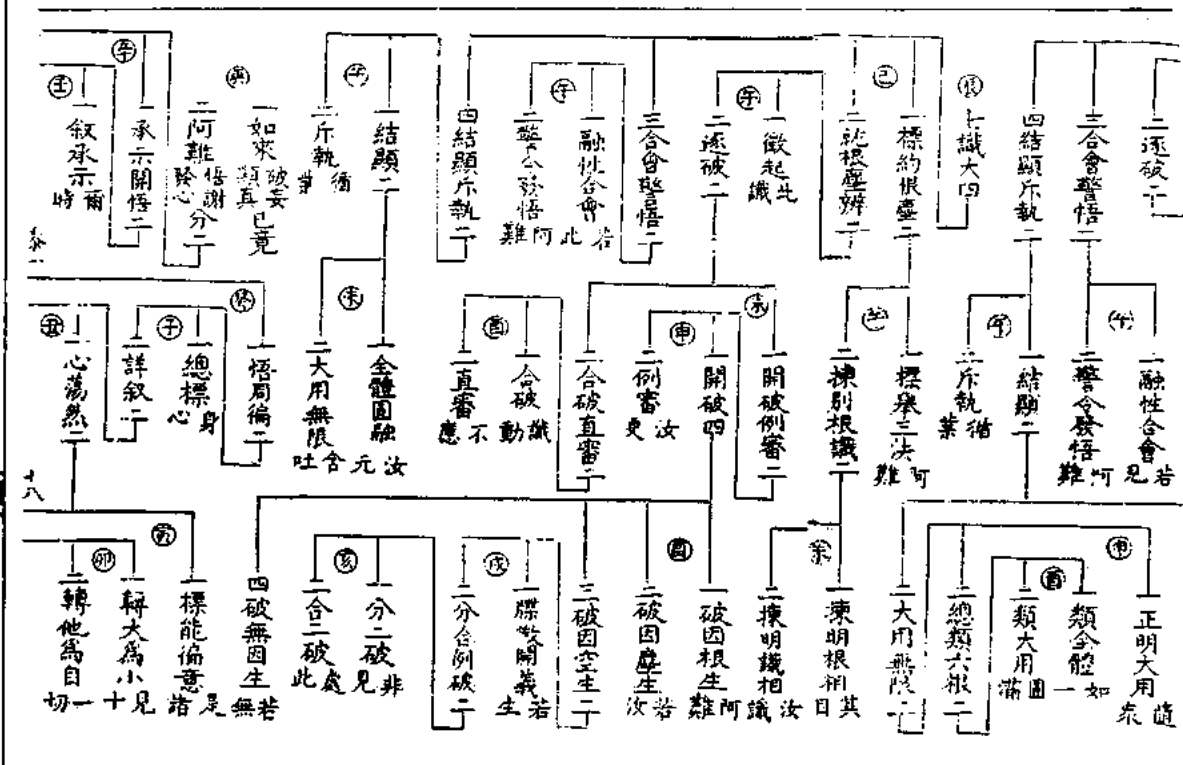 二逐破二
三合會警悟二
四結顯斥執二
七識大四
一標約根塵二
二就根塵辨二
一徵起 此識
二逐破二
三合會警悟二
一融性合會 若此
二警令發悟 阿難
四結顯斥執二
一結顯二
二斥執 循業
一如來破妄顯真已竟
二阿難悟謝發心分二
一承示開悟二
一叙承示 爾時
一融性合會 若見
二警令發悟 阿難
一結顯二
二斥執 循業
一標舉二決 阿難
二揀別根識二
一開破例審二
一開破四
二例審 汝更
二合破直審二
一合破 識動
二直審 不應
一全體圓融 汝元
二大用無限 含吐
一悟周徧二
一總標 身心
二詳叙二
一心蕩然二
一正明大用 隨衆
一類全體 如一
二類大用 圓滿
二總類六根二
二大用無限二
一揀明根相 其目
二揀明識相 汝識
一破因根生 阿難
二破因塵生 若汝
三破因空生二
一牒徵開義 若生
二分合例破二
一分二破 非見
二合二破 處此
四破無因生 若無
一標能徧意 是諸
一轉大為小 見十
二轉他為自 一切
十八